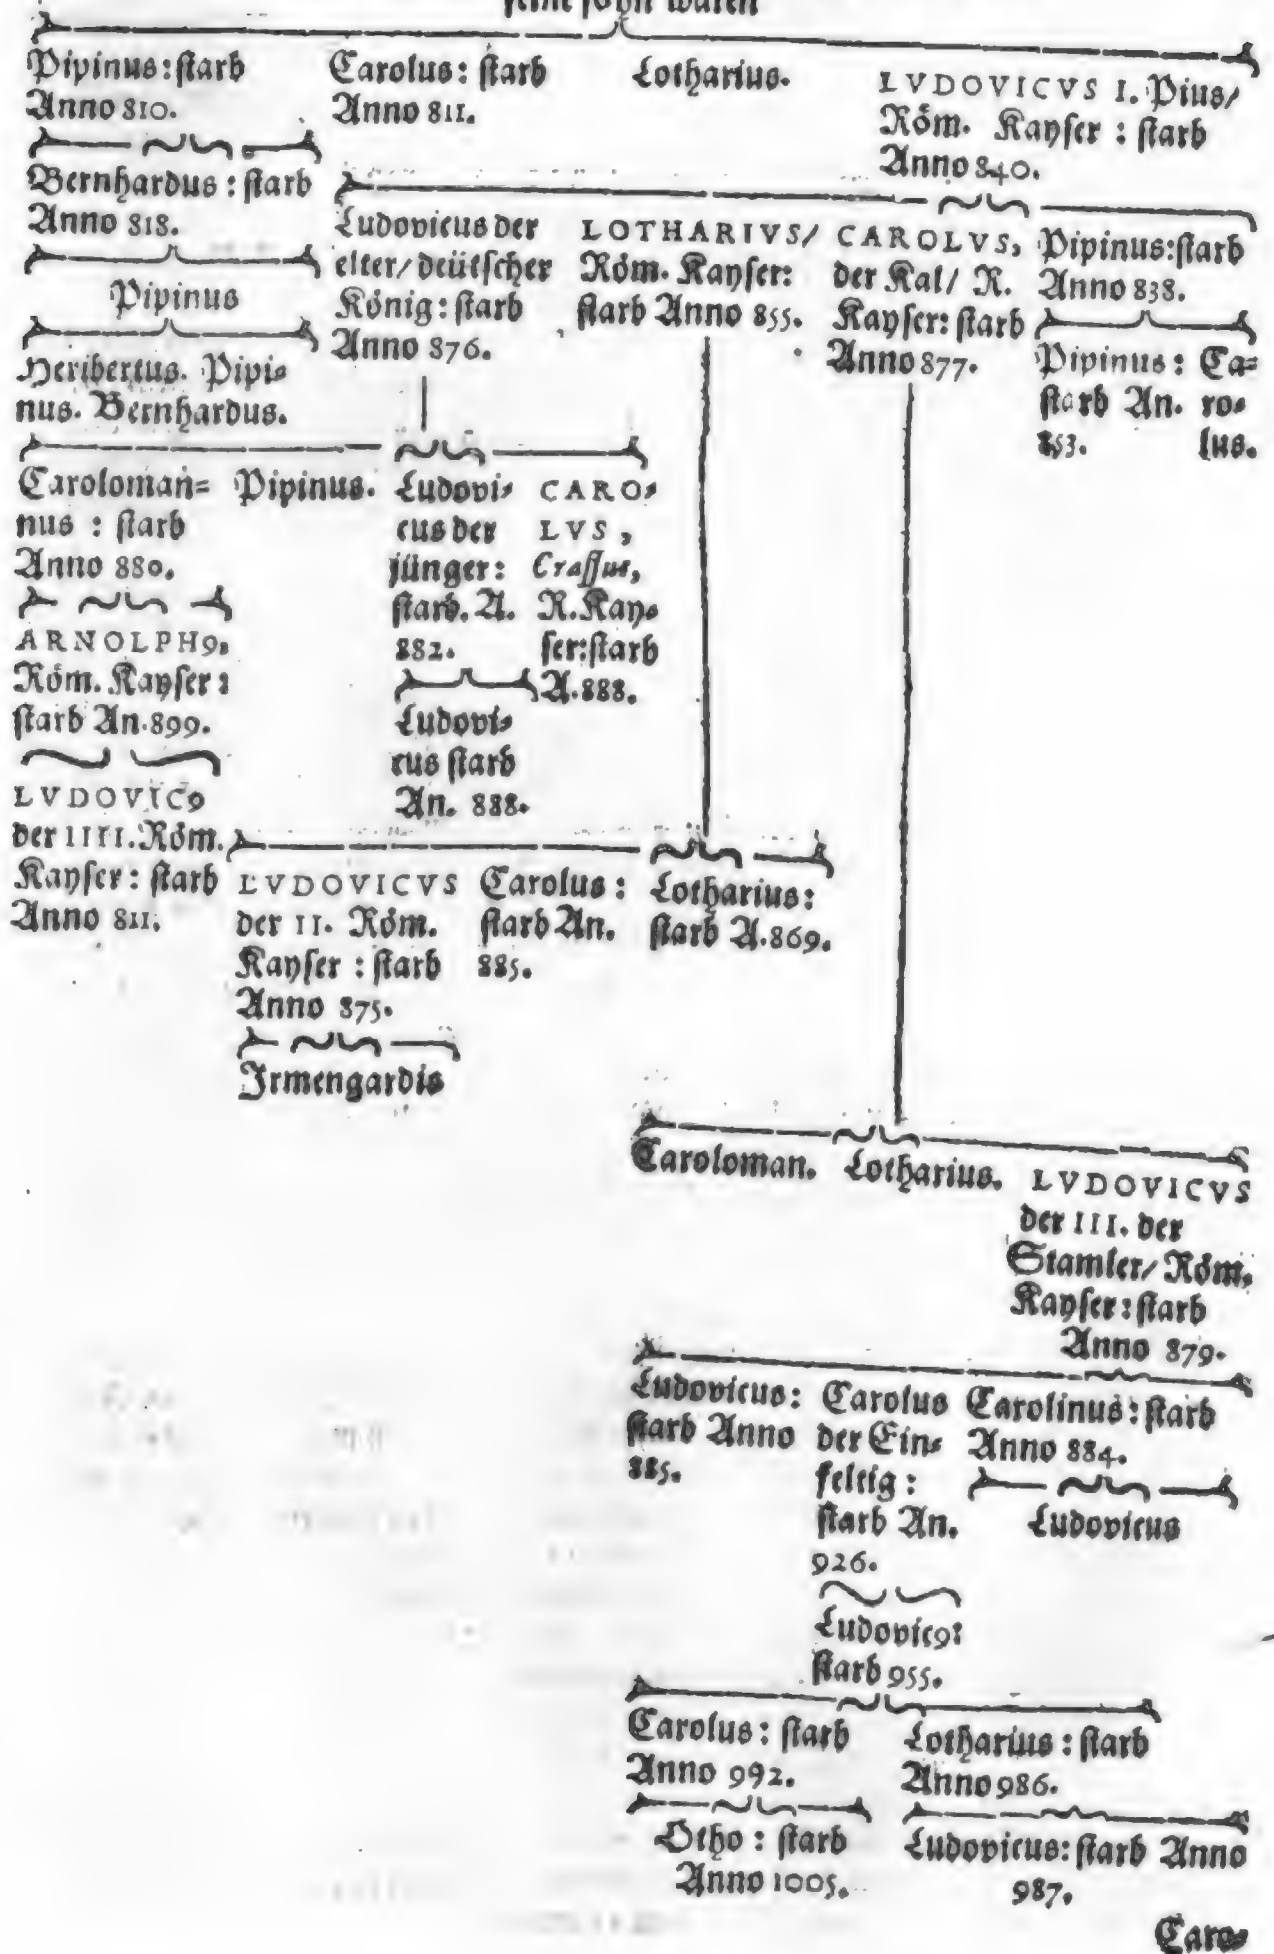 seine söhn waren
Pipinus: starb
Anno 810.
Carolus: starb
Anno 811.
Lotharius.
LVDOVICVS I. Pius/
Röm. Kayser : starb
Anno 840.
Bernhardus : starb
Anno 818.
Pipinus
Heribertus. Pipi-
nus. Bernhardus.
Ludovicus der
elter/ deütscher
König: starb
Anno 876.
LOTHARIVS/
Röm. Kayser:
starb Anno 855.
CAROLVS,
der Kal/ R.
Kayser: starb
Anno 877.
Pipinus: starb
Anno 838.
Pipinus:
starb An.
853.
Ca=
ro-
lus.
Caroloman=
nus : starb
Anno 880.
Pipinus.
Ludovi-
cus der
jünger:
starb. A.
882.
CARO-
LVS,
Crassus,
R. Kay-
ser: starb
A. 888.
ARNOLPH9,
Röm. Kayser:
starb An. 899.
Ludovi-
cus starb
An. 888.
LVDOVIC9
der IIII. Röm.
Kayser: starb
Anno 811.
LVDOVICVS
der II. Röm.
Kayser : starb
Anno 875.
Carolus:
starb An.
885.
Lotharius:
starb A. 869.
Irmengardis
Caroloman.
Lotharius.
LVDOVICVS
der III. der
Stamler/ Röm.
Kayser: starb
Anno 879.
Ludovicus:
starb Anno
885.
Carolus
der Ein-
feltig:
starb An.
926.
Carolinus: starb
Anno 884.
Ludovicus
Ludovic9:
starb 955.
Carolus: starb
Anno 992.
Lotharius: starb
Anno 986.
Otho : starb
Anno 1005.
Ludovicus: starb Anno
987.
Caro-